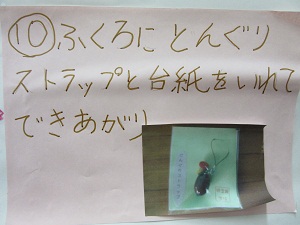 ⑩ふくろに とんぐり
ストラップと台紙をいれて
できあがり